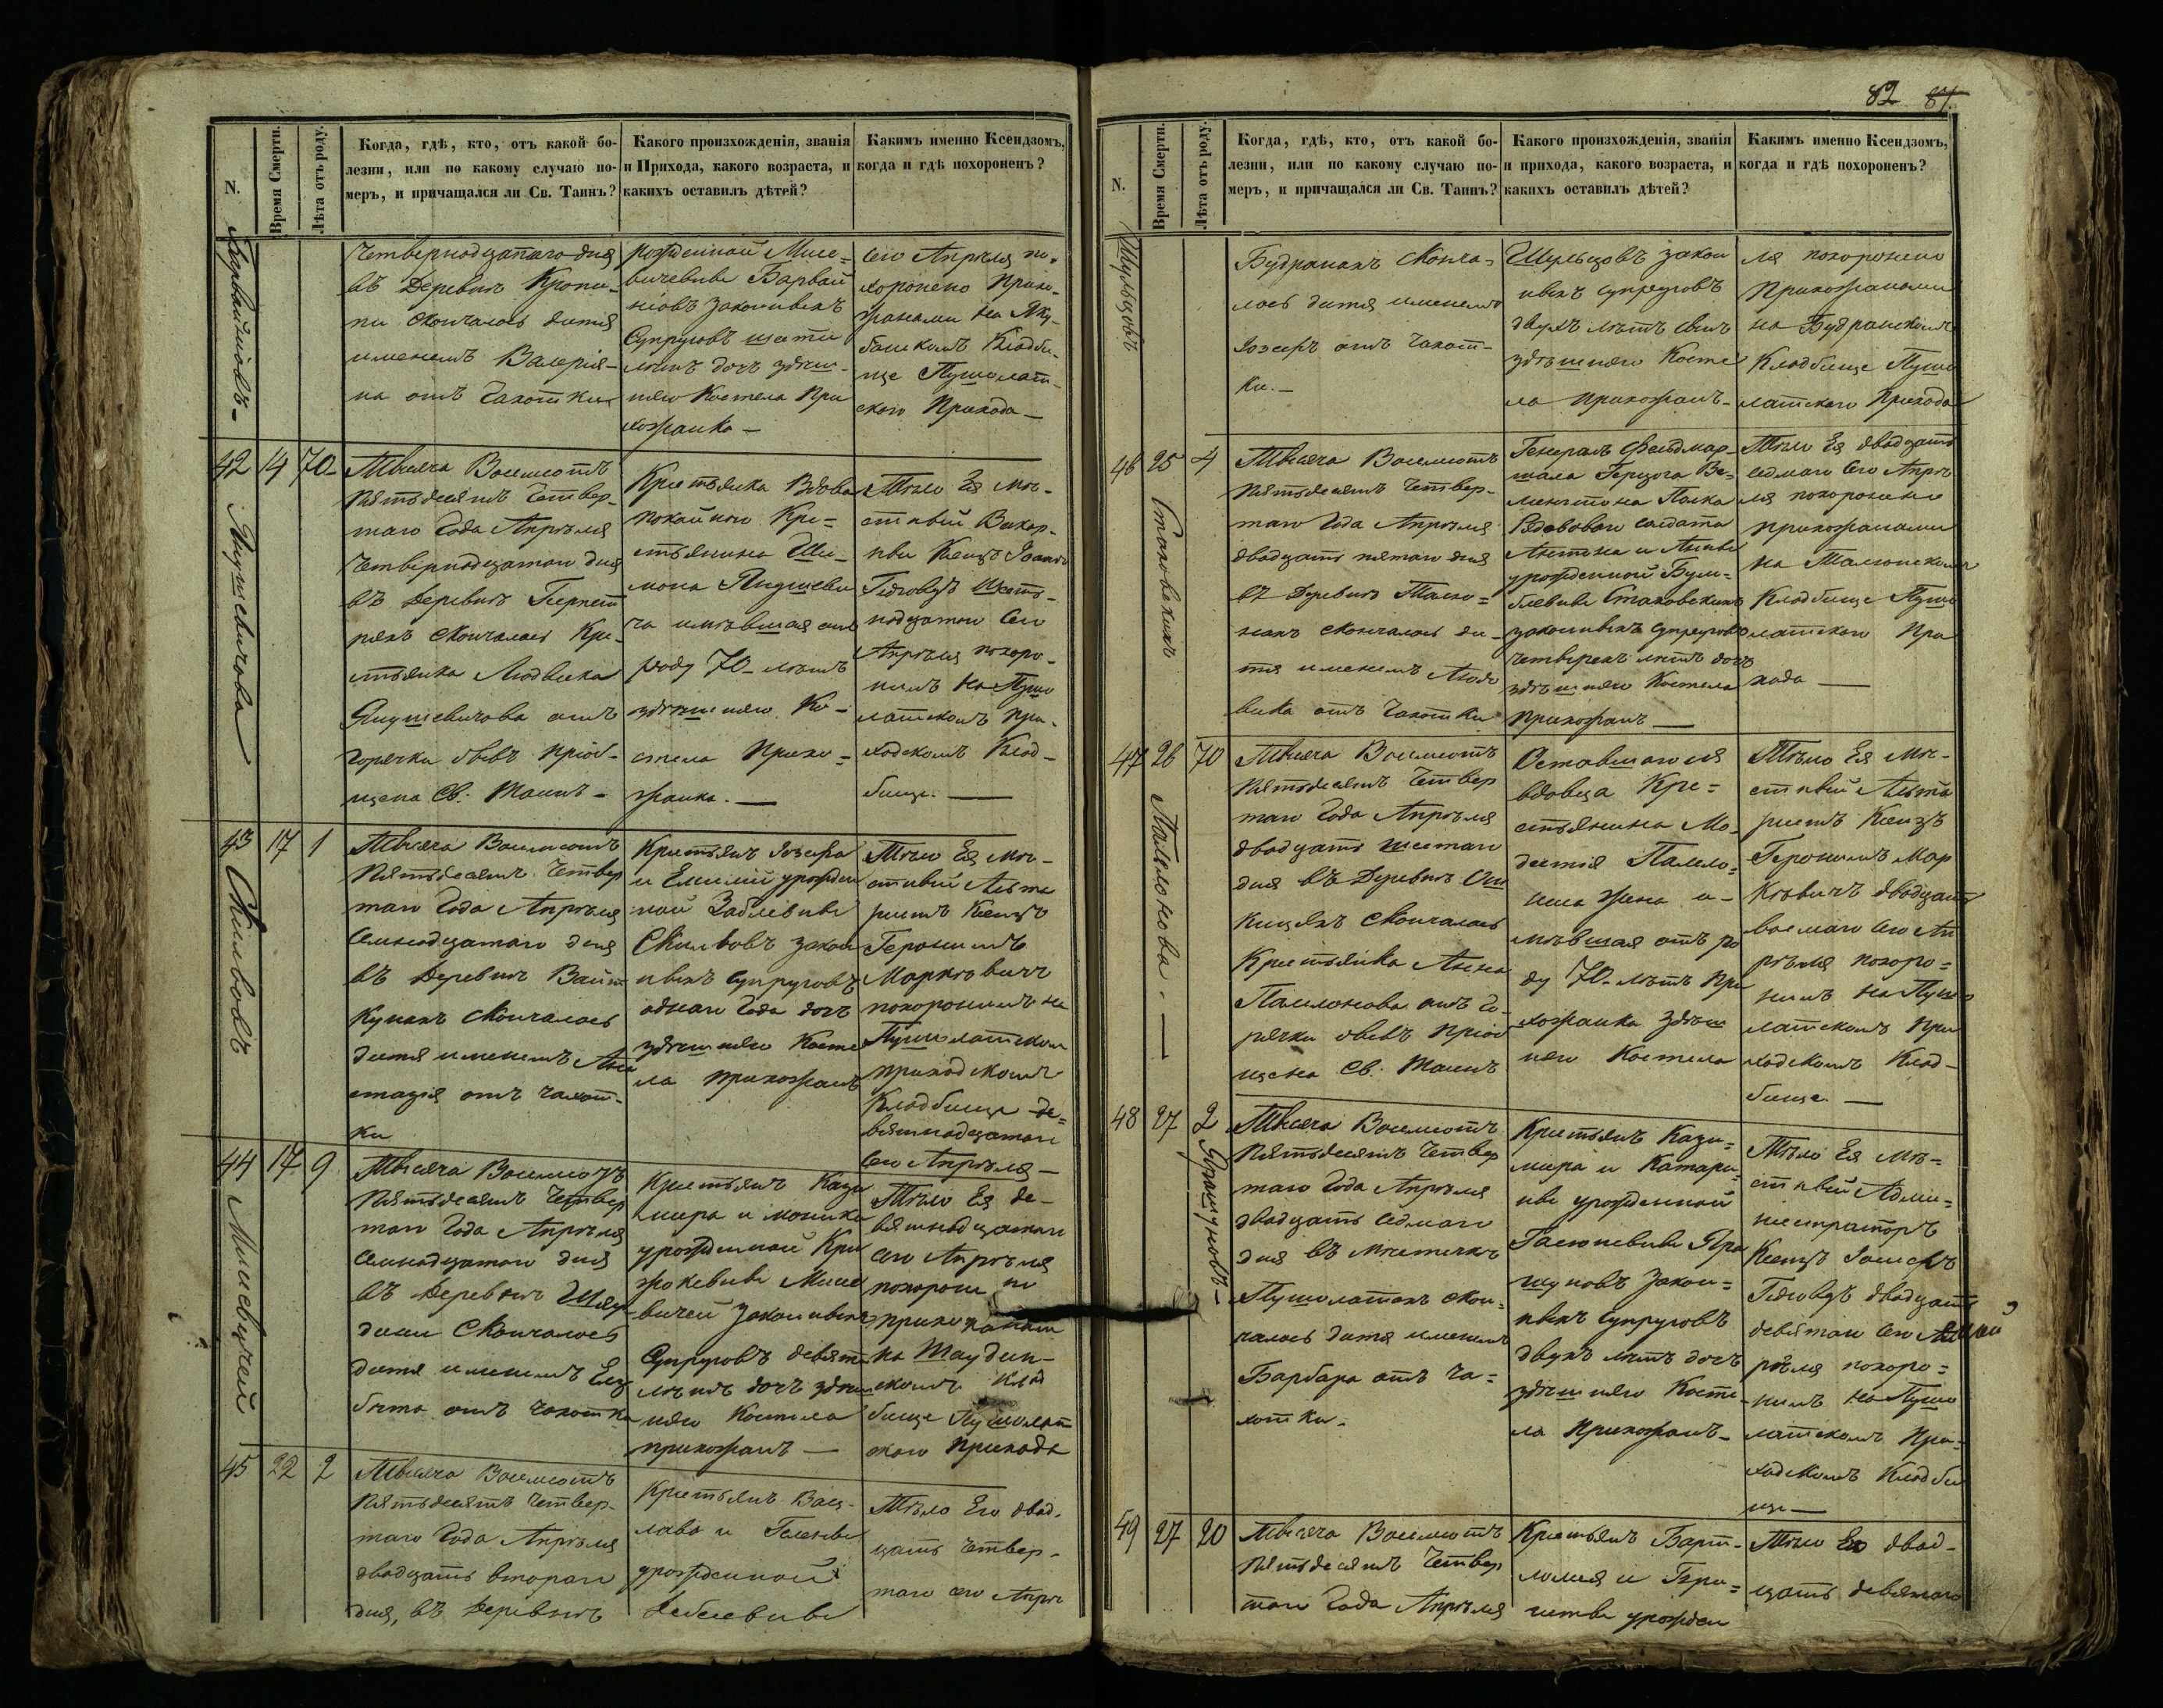 82 81.
N.
Время Смерти.
Лѣта отъ роду.
Когда, гдѣ, кто, отъ какой бо-
лезни, или по какому случаю по-
меръ, и причащался ли Св. Таинъ?
Какого произхожденія, званія
и Прихода, какого возраста, и
какихъ оставилъ дѣтей?
Каким именно Ксендзомъ,
когда и гдѣ похороненъ?
четвернодцатаго дня
въ Деревнѣ
скончалось дитя
именемъ Валерія-
на отъ Чахотки
рожденной Мисе=
вичевны
законныхъ
Супруговъ шести
лѣтъ дочь здѣш-
няго Костела При
хожанка —
сего Апрѣля по-
хоронено Прихо-
жанами на Яку-
башкомъ Кладби-
ще Пушолат-
скаго Прихода —
42 14 70
Янушевичова
Тысяча Восемсотъ
Пятьдесятъ Четвер-
таго Года Апрѣля
Четвернодцатаго дня
въ Деревнѣ
скончалась Кре-
стьянка Людвика
Янушевичова отъ
горячки бывъ пріоб-
щена Св. Таинъ -
Крестьянка Вдова
покойного Кре=
стьянина Ши-
мона Янушеви
ча имѣвшая отъ
роду 70 лѣтъ
здѣшняго Ко-
стела Прихо=
жанка. —
Тѣло Ея мѣ-
стный Викар-
ный Ксендзъ Іоаннъ
Гедговдъ Шест-
надцатаго Сего
Апрѣля похоро-
нилъ на Пушо
латскомъ При-
ходскомъ Клад-
бище. —
43 17 1
Скилвовъ
Тысяча Восемсотъ
Пятьдесятъ Четвер
таго Года Апрѣля
Семнодцатаго дня
въ Деревнѣ Вайт
купахъ скончалось
дитя именемъ Ана
стазія отъ чахот-
ки
Крестьянъ Іозефа
и Емиліи урожден
ной Заблевивны
Скилвовъ закон
ныхъ супруговъ
одного Года дочь
здѣшняго Косте
ла прихожанъ
Тѣло Ея мѣ-
стный Альта
ристъ Ксендзъ
Геронимъ
Марцкѣвичъ
похоронилъ на
Пушолатскомъ
приходскомъ
Кладбище де-
вятнадцатаго
Сего Апрѣля —
44 17 9
Мисевичей
Тысяча Восемсотъ
Пятьдесятъ Четвер
таго Года Апрѣля
Семнодцатаго дня
въ Деревнѣ
скончалось
дитя именемъ Елз
бѣта отъ чахотки
Крестьянъ Кази
мира и Моники
урожденной Кри
жокевивны Мисе
вичей Законныхъ
Супруговъ девяти
лѣтъ дочь здѣш
няго Костела
прихожанъ —
Тѣло Ея де-
вятнодцатаго
сего Апрѣля
похоронено
прихожанами
на Шаудин-
скомъ Клад
бище Пушолат
скаго Прихода
45 22 2
Тысяча Восемсотъ
Пятьдесятъ Четвер-
таго Года Апрѣля
двадцать второго
дня, въ Деревнѣ
Крестьянъ Вац-
лава и Геленѣ
урожденной
Тѣло Его двад-
цать четвер-
таго сего Апрѣ
N.
Время Смерти.
Лѣта отъ роду.
Когда, гдѣ, кто, отъ какой бо-
лезни, или по какому случаю по-
меръ, и причащался ли Св. Таинъ?
Какого произхожденія, званія
и прихода, какого возраста, и
какихъ оставилъ дѣтей?
Какимъ именно Ксендзомъ,
когда и гдѣ похороненъ?
Шульцовъ
Будранахъ Сконча-
лось дитя именемъ
Іозефъ отъ Чахот-
ки. —
Шульцовъ закон
ныхъ супруговъ
двухъ лѣтъ сынъ
здѣшняго Косте
ла прихожанъ -
ля похоронено
прихожанами
на Будранскомъ
Кладбище Пушо
латскаго Прихода
46 25 4
Стаховскихъ
Тысяча Восемсотъ
Пятьдесятъ Четвер-
таго Года Апрѣля
двадцать пятаго дня
въ Деревнѣ Талю=
нахъ скончалось ди-
тя именемъ Людо
вика отъ чахотки
Генералъ Фельдмар-
шала Герцога Ве-
ленгтона Полка
Рядового солдата
Антона и Анны
урожденной
Стаховскихъ
законныхъ супруговъ
четверехъ лѣтъ дочь
здѣшняго Костела
прихожанъ —
Тѣло Ея двадцать
седмаго Сего Апрѣ
ля похоронено
прихожанами
на Талюнскомъ
Кладбище Пушо
латскаго При
хода —
47 26 70
Палюнова. —
Тысяча Восемсотъ
Пятьдесятъ Четвер
таго Года Апрѣля
двадцать шестаго
дня въ Деревнѣ Ош
скончалась
Крестьянка Анна
отъ го-
рячки бывъ пріоб
щена Св. Таинъ
Оставшагося
вдовца Кре=
стьянина Мо-
дестія
жена и-
мѣвшая отъ ро
ду 70 лѣтъ При
хожанка здѣш
няго Костела
Тѣло Ея мѣ-
стный Альта
ристъ Ксендзъ
Геронимъ Мар
кѣвичъ двадцать
восмаго Сего Ап
рѣля похоро=
нилъ на Пушо
латскомъ При
ходскомъ Клад-
бище. —
48 27 2
Ярашуновъ —
Тысяча Восемсотъ
Пятьдесятъ Четвер
таго Года Апрѣля
двадцать седмаго
дня въ мѣстечкѣ
Пушолатахъ скон-
чалось дитя именемъ
Барбара отъ ча=
хотки.
Крестьянъ Кази=
мира и Катари-
ны урожденной
Яра
шуновъ Закон=
ныхъ Супруговъ
двухъ лѣтъ дочь
здѣшняго Косте-
ла Прихожанъ -
Тѣло Ея мѣ=
стный Адми=
нистраторъ
Ксендзъ
Гедговдъ двадцать
девятаго сего Ап
рѣля похоро=
нилъ на Пушо
латскомъ При-
ходскомъ Кладби
ще —
49 27 20
Тысяча Восемсотъ
Пятьдесятъ Четвер
таго Года Апрѣля
Крестьянъ Барт-
ломея и
урожден
Тѣло Его двад-
цать девятаго